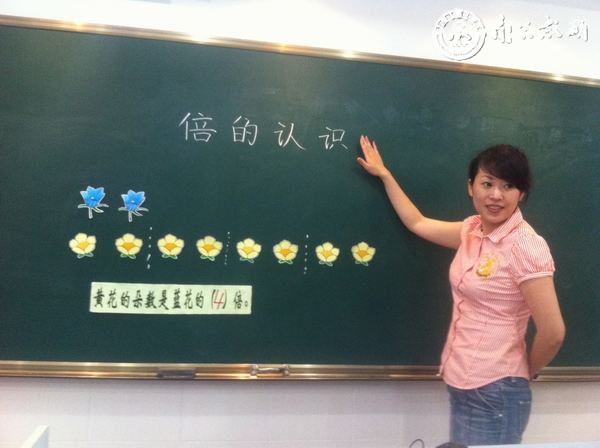 倍的认识
黄花的朵数是蓝花的(4)倍。